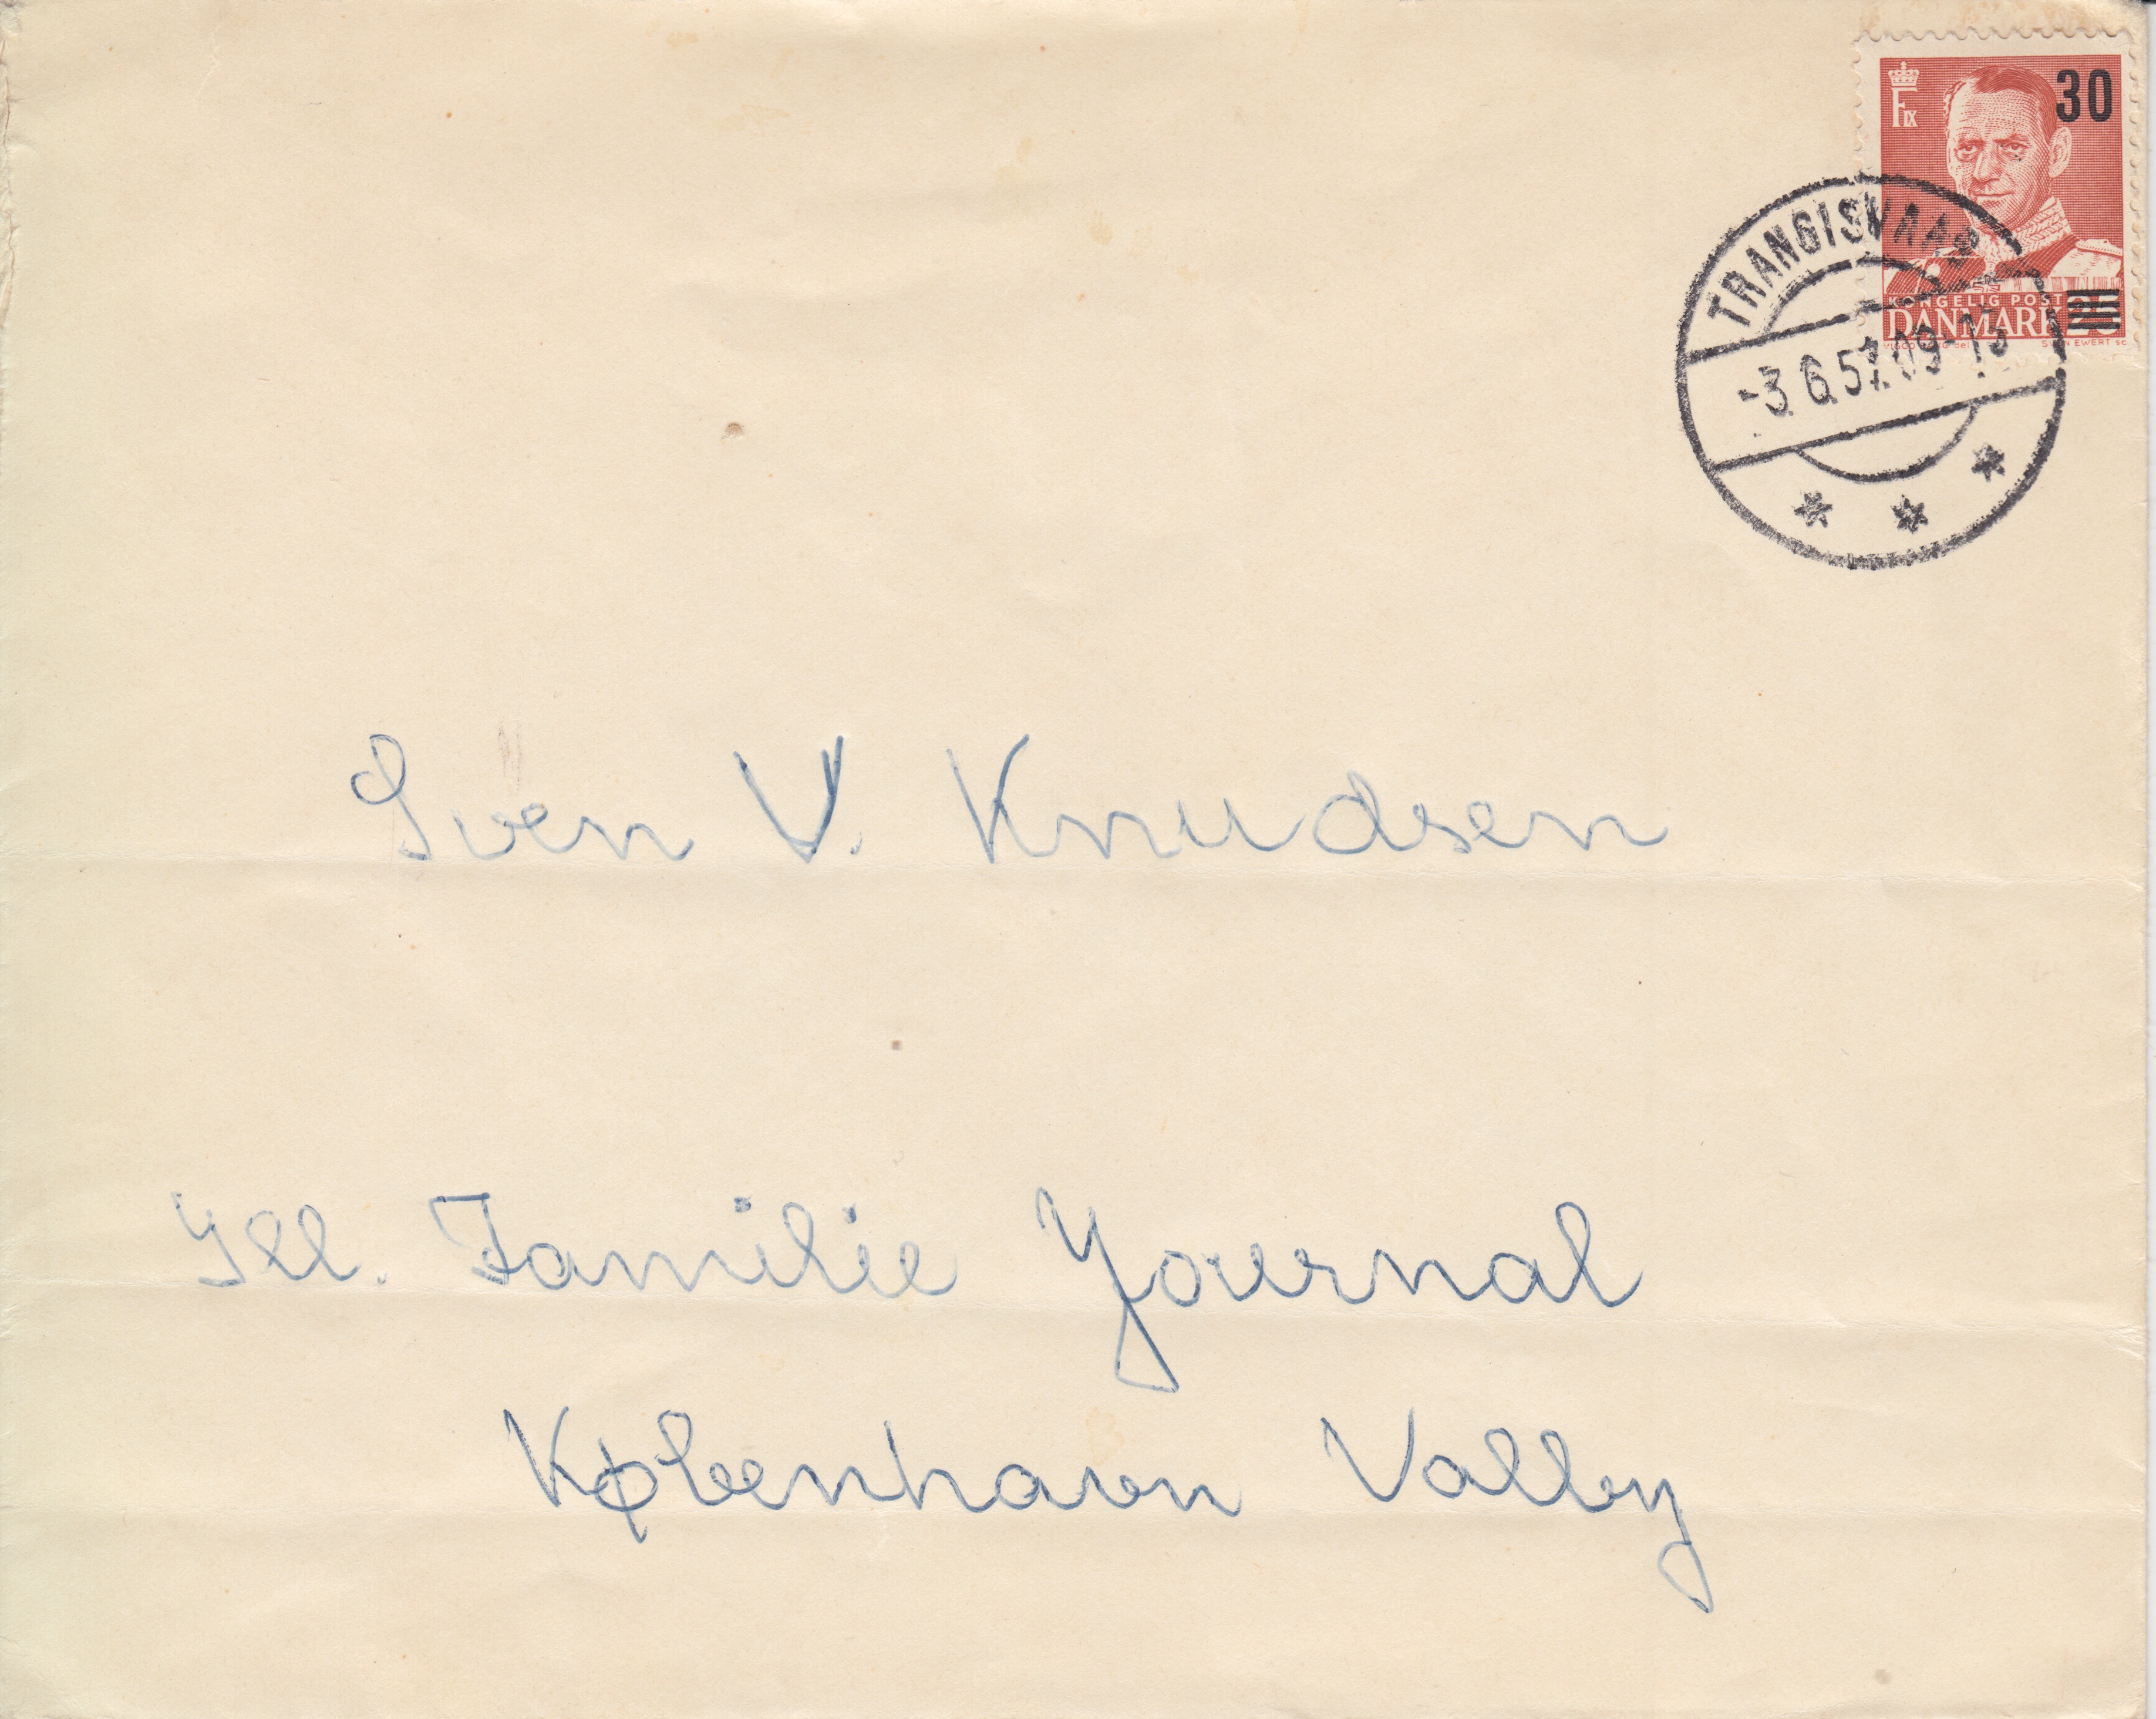 30
F IX
KONGELIG POST
DANMARK 25
SVEN EWERT sc
TRANGISVAAG
-3.6.57.09-13
Sven V. Knudsen
Ill. Familie Journal
København Valby